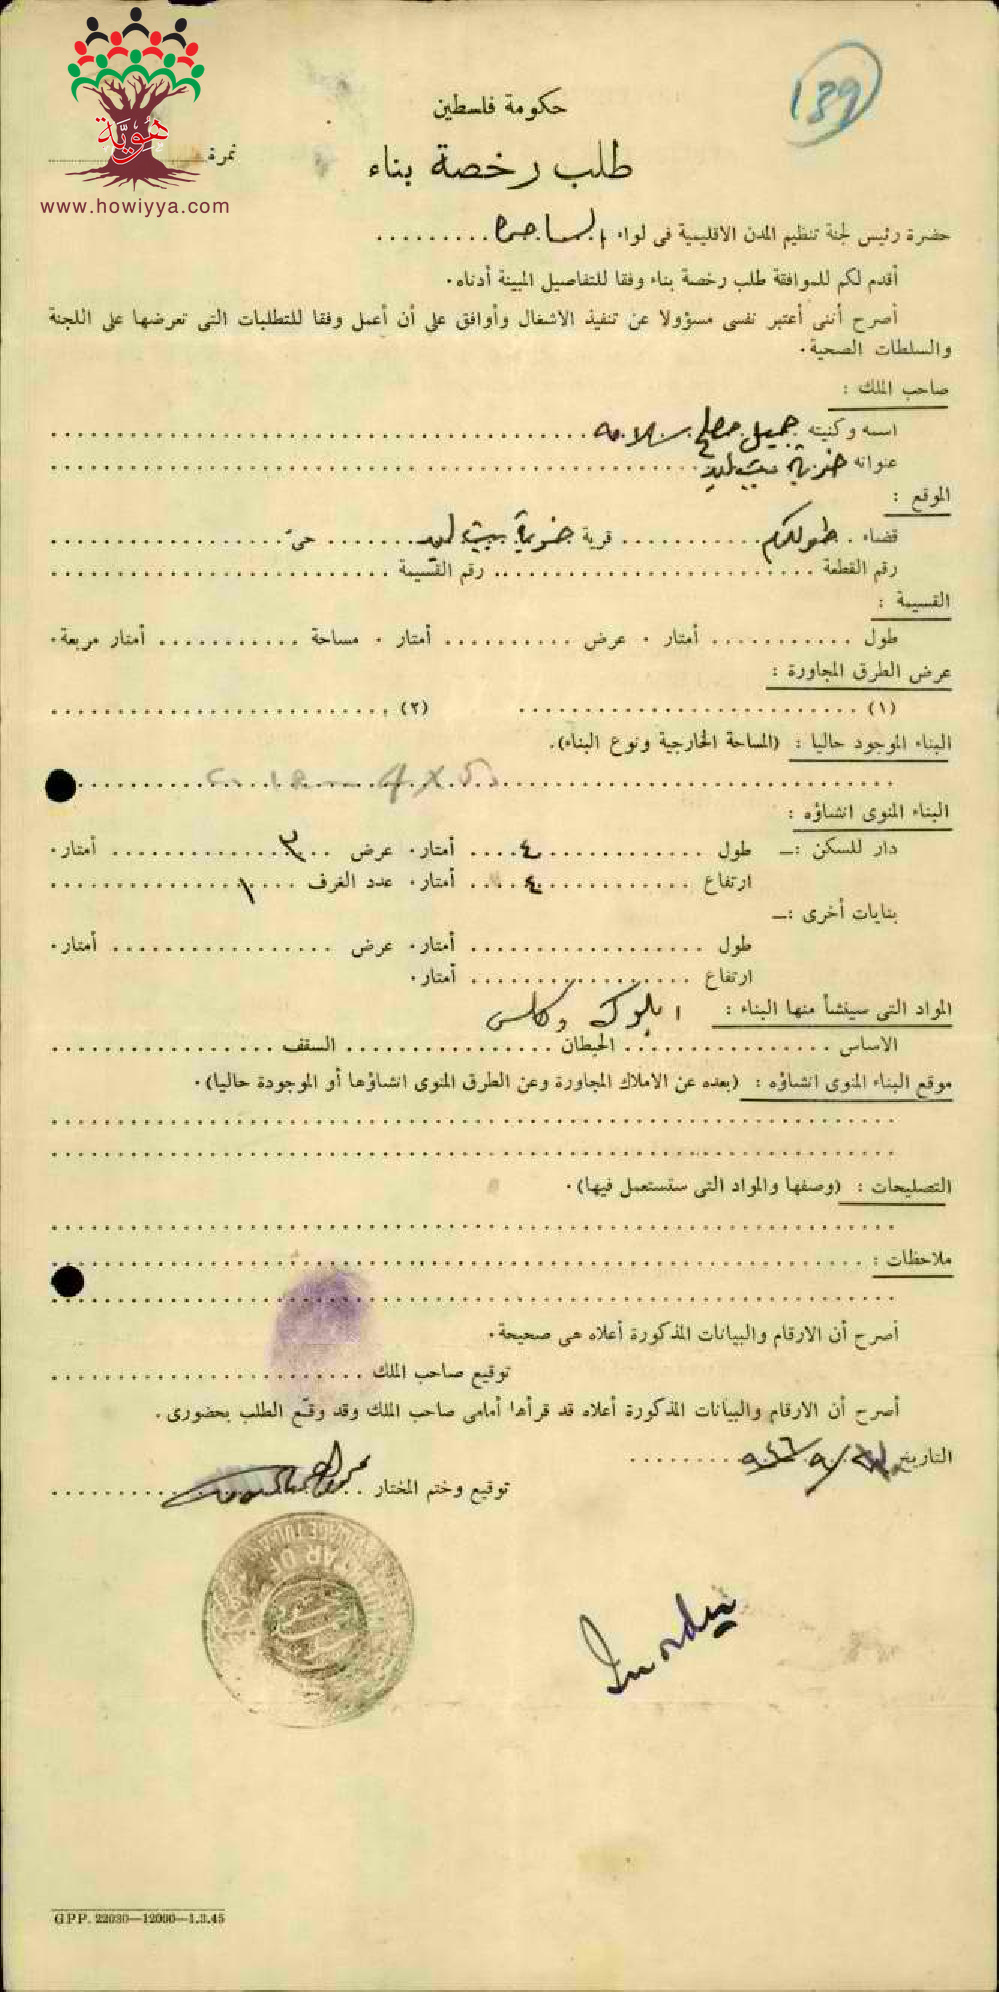 139
حكومة فلسطين
طلب رخصة بناء
نمرة
هويّة
www.howiyya.com
حضرة رئيس لجنة تنظيم المدن الاقليمية فى لواء السامرة
أقدم لكم للموافقة طلب رخصة بناء وفقا للتفاصيل المبينة أدناه.
أصرح أننى أعتبر نفسى مسؤولا عن تنفيذ الاشغال وأوافق على أن أعمل وفقا للتطلبات التى تعرضها على اللجنة
والسلطات الصحية.
صاحب الملك :
اسمه وكنيته جميل مصلح سلامه
عنوانه خربة بيت ليد
الموقع :
قضاء طولكرم قرية خربة بيت ليد حىّ
رقم القطعة رقم القسيمة
القسيمة :
طول أمتار . عرض أمتار . مساحة أمتار مربعة.
عرض الطرق المجاورة :
(١) (٢)
البناء الموجود حاليا : (المساحة الخارجية ونوع البناء).
البناء المنوى انشاؤه :
دار للسكن :— طول ٤ أمتار. عرض ٣ أمتار.
ارتفاع ٤ أمتار. عدد الغرف ١
بنايات أخرى :—
طول أمتار. عرض أمتار.
ارتفاع أمتار.
المواد التى سينشأ منها البناء : ابلوك وكلس
الاساس الحيطان السقف
موقع البناء المنوى انشاؤه : (بعده عن الاملاك المجاورة وعن الطرق المنوى انشاؤها أو الموجودة حاليا).
التصليحات : (وصفها والمواد التى ستستعمل فيها).
ملاحظات :
أصرح أن الارقام والبيانات المذكورة أعلاه هى صحيحة.
توقيع صاحب الملك
أصرح أن الارقام والبيانات المذكورة أعلاه قد قرأها أمامى صاحب الملك وقد وقّع الطلب بحضورى.
التاريخ
توقيع وختم المختار
MUKHTAR OF
In order
G.P.P. 22030—12000—1.3.45